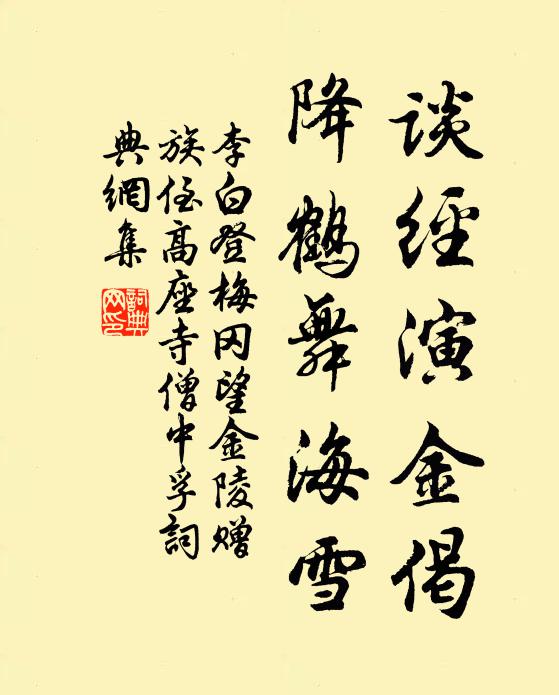 谈經演金偈
降鶴舞海雪
李白登梅冈望金陵赠
族侄高座寺僧中孚詞
典網集
詞典网印